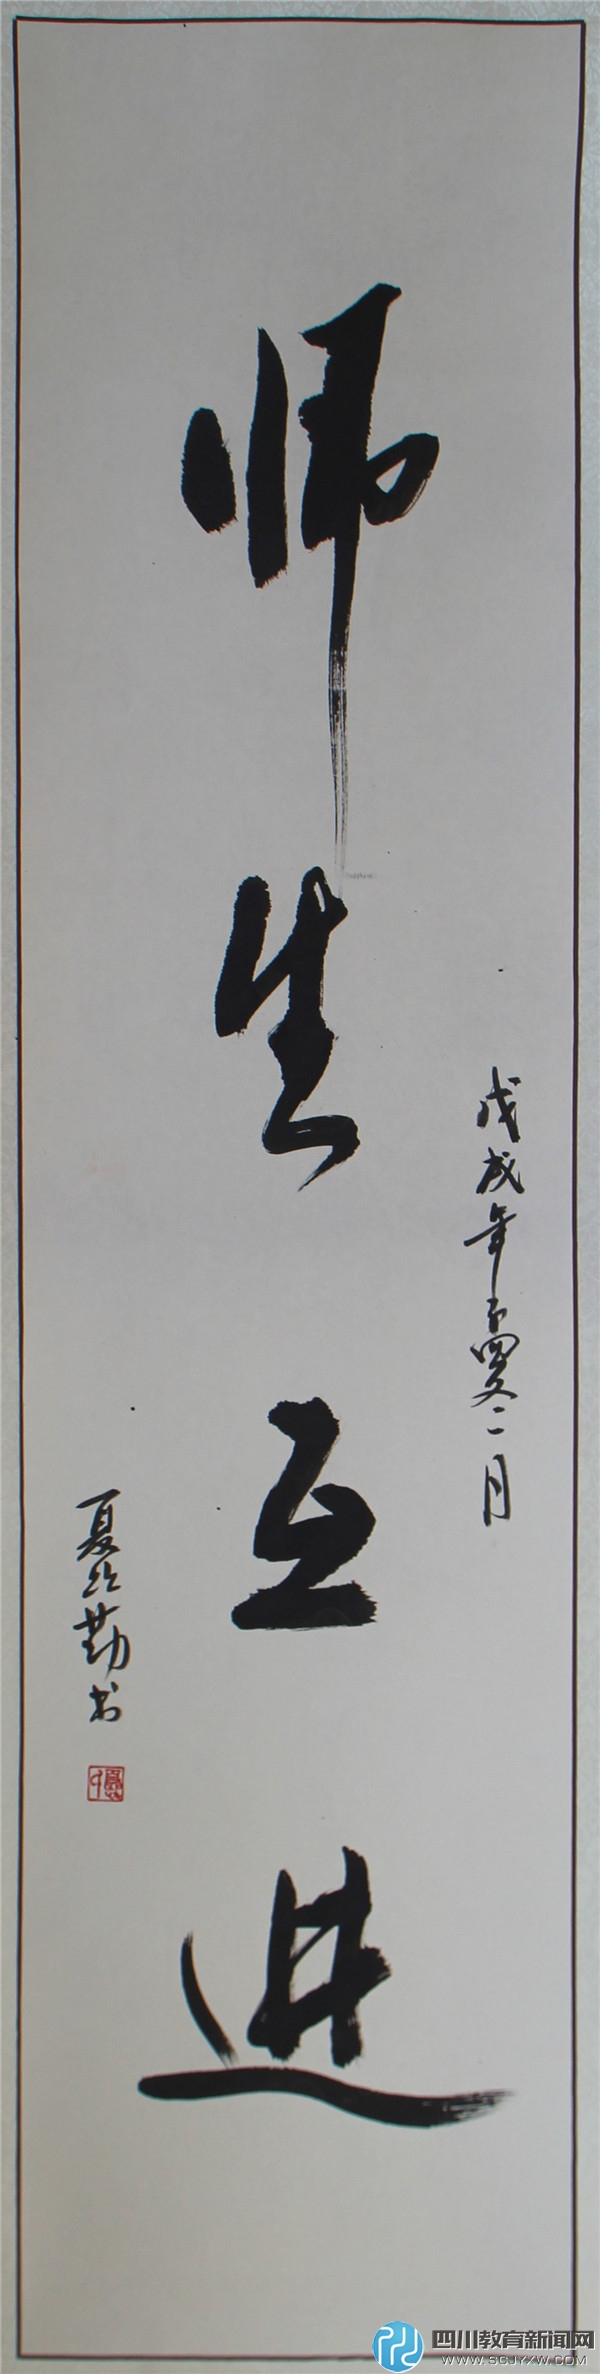 师生互进
戊戌年
二月
夏
勤书
四川教育新闻网
WWW.SCJYXW.COM